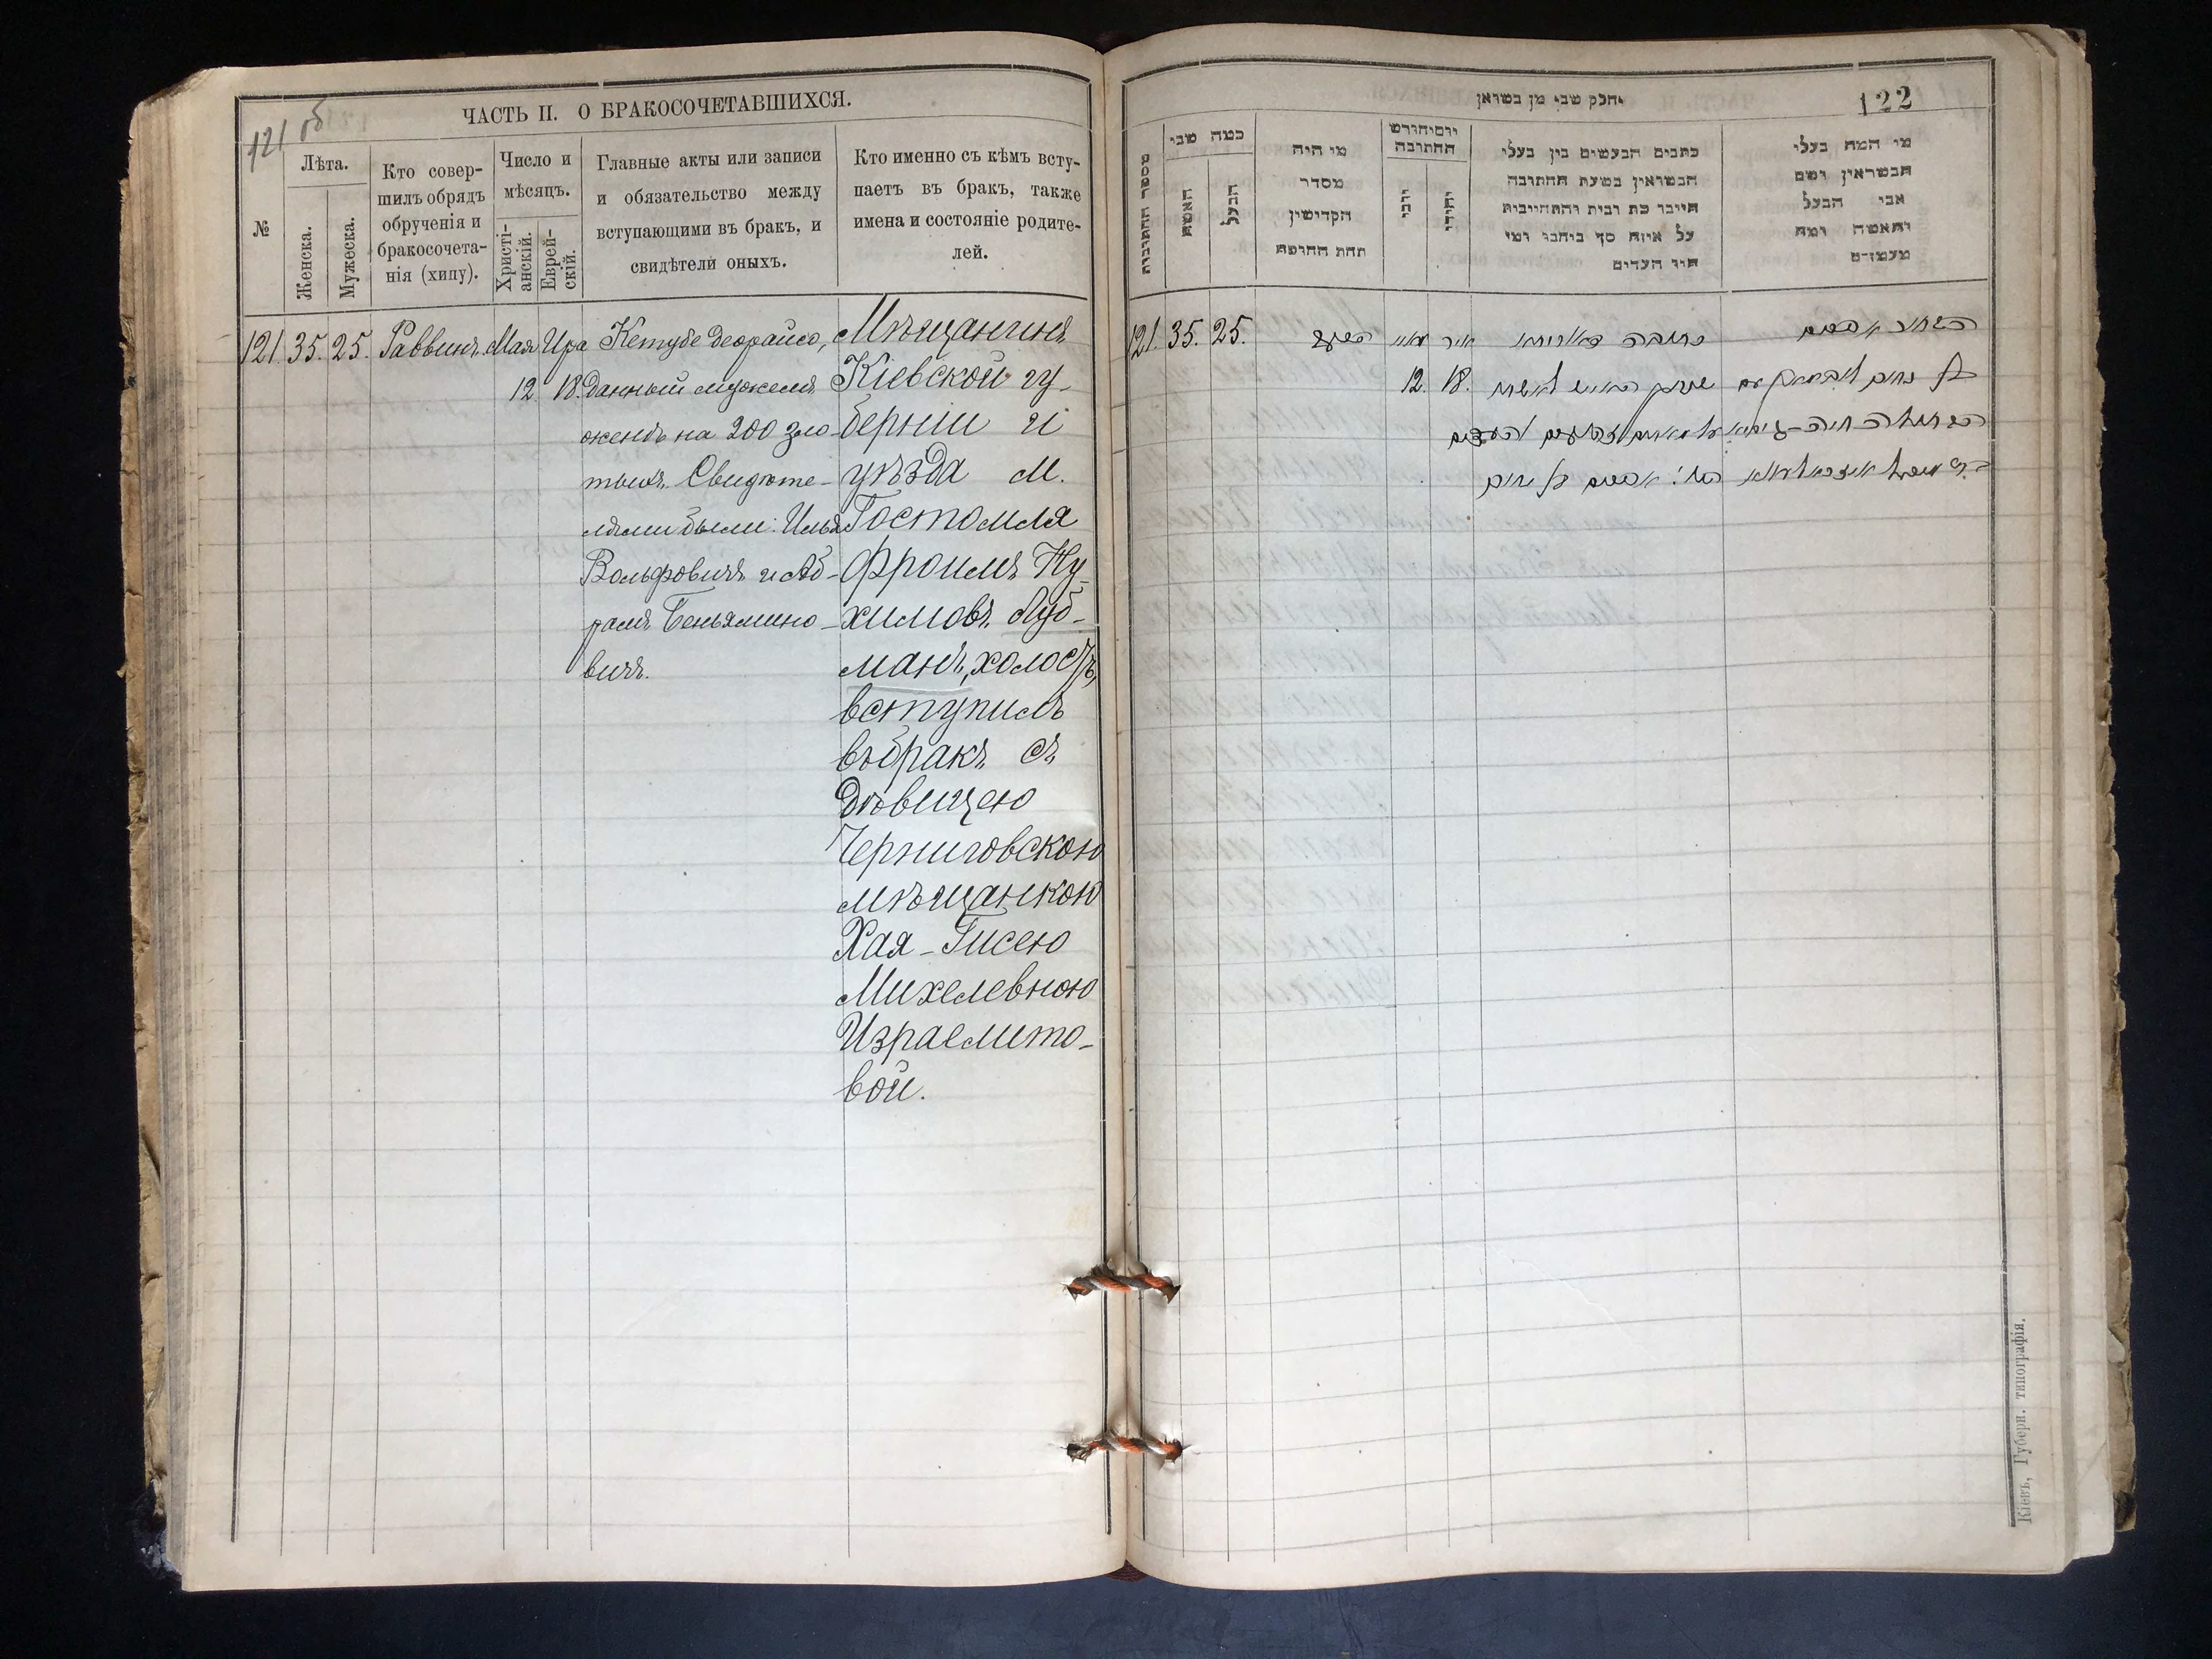 121 об
ЧАСТЬ II. О БРАКОСОЧЕТАВШИХСЯ.
№
Лѣта.
Женска.
Мужеска.
Кто совер-
шилъ обрядъ
обрученія и
бракосочета-
нія (хипу).
Число и
мѣсяцъ.
Христі-
анскій.
Еврей-
скій.
Главные акты или записи
и обязательство между
вступающими въ бракъ, и
свидѣтели оныхъ.
Кто именно съ кѣмъ всту-
паетъ въ бракъ, также
имена и состояніе родите-
лей.
121. 35. 25. Раввинъ. Мая 12 Ира 18.
Кетубе деорайсо,
данный мужемъ
женѣ на 200 зло-
тыхъ. Свидѣте-
лями были: Илья
Вольфовичъ и Аб-
рамъ Беньямино-
вичъ.
Мѣщанинъ
Кіевской гу-
берніи и
уѣзда м.
Гостомля
Фроимъ Ну-
химовъ Луб-
манъ, холостъ,
вступилъ
въ бракъ съ
дѣвицею
Черниговскою
мѣщанкою
Хая-Гисею
Михелевною
Израелито-
вой.
וחלק שני מן נשואן
122
מספר החתונות
כמה שני
האשה
הבעל
מי היה
מסדר
הקדושין
תחת החופה
יום וחודש
החתונה
יוני
יהודי
כתבים הנעשים בין בעלי
הנשואין בשעת החתונה
חיובי כת ובית והתחייבות
על איזה סך ביחבו ומי
היו העדים
מי המה בעלי
הנשואין ושם
אבי הבעל
והאשה ומה
מעמדם
121. 35. 25.
מאי
12.
איר
18.
כתובה דאורייתא
הבחור אפרים
Кіевъ, Губерн. типографія.